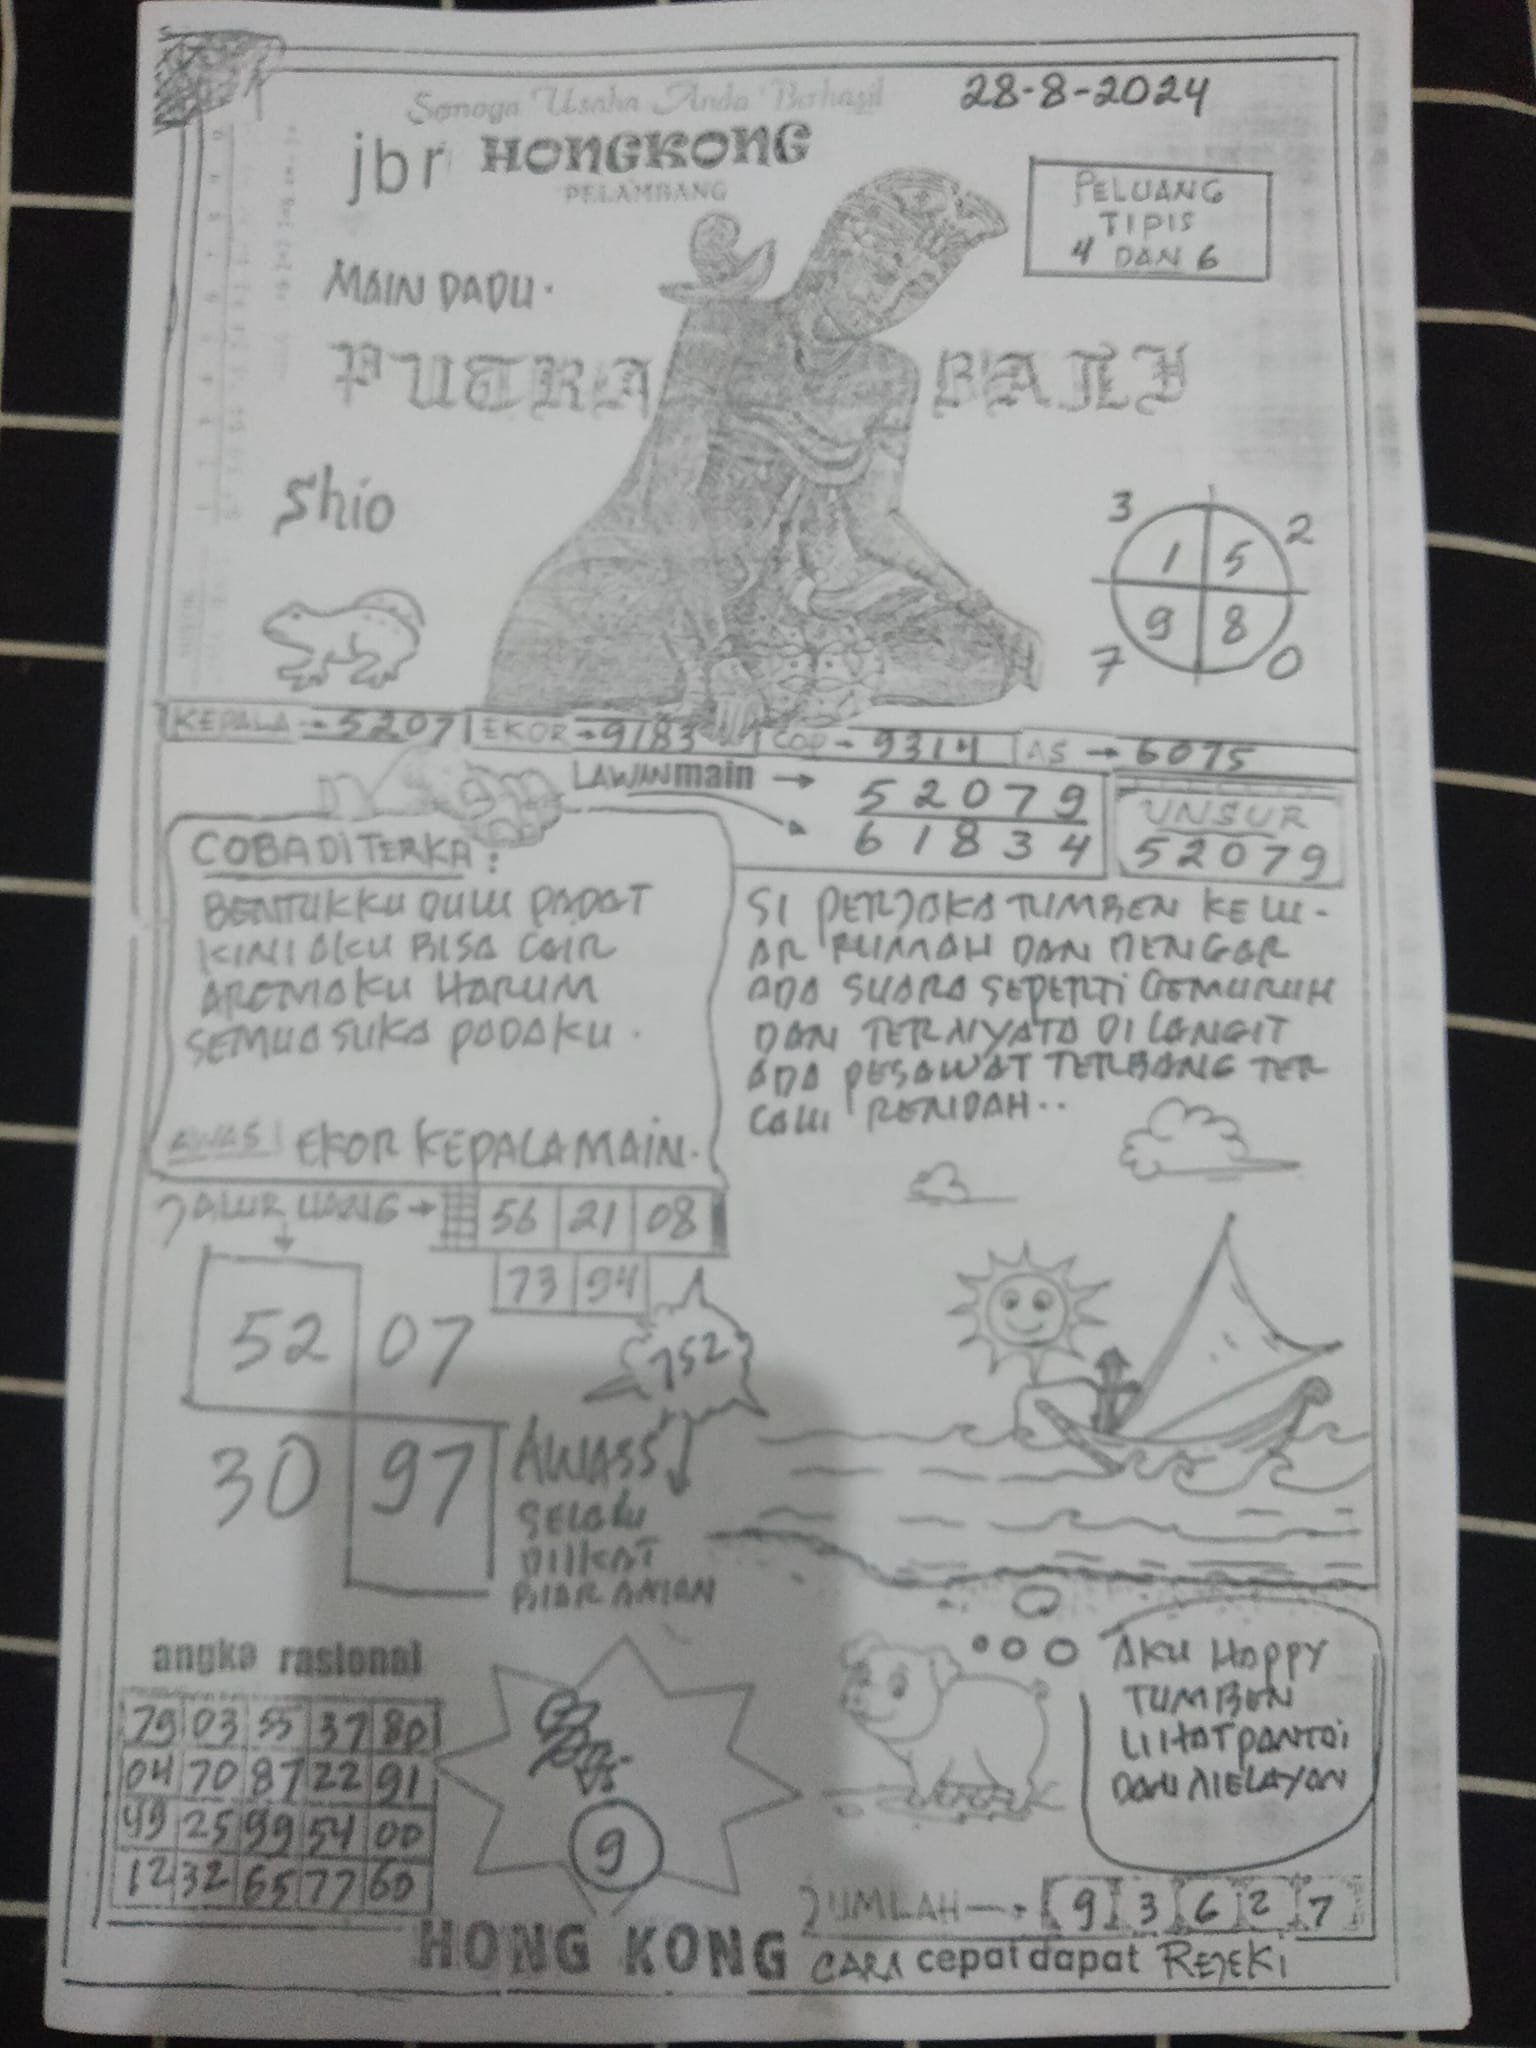 Semoga Usaha Anda Berhasil
28-8-2024
jbr HONGKONG
PELAMBANG
PELUANG
TIPIS
4 DAN 6
MAIN DADU.
PUTRA BALI
Shio
3 2
1 5
9 8
7 0
KEPALA → 5207 EKOR → 9183 COP → 9314 AS → 6075
LAWAN main → 52079
61834
UNSUR
52079
COBA DI TERKA :
BENTUKKU DULU PADAT
KINI AKU BISA CAIR
AROMAKU HARUM
SEMUA SUKA PADAKU.
AWAS! EKOR KEPALA MAIN.
SI PERJAKA TUMBEN KELU-
AR RUMAH DAN DENGAR
ADA SUARA SEPERTI GEMURUH
DAN TERNYATA DI LANGIT
ADA PESAWAT TERBANG TER
LALU RENDAH..
JALUR UANG → 56 21 08
73 94
52 07
30 97
752
AWASS
SELALU
DIIKAT
BIAR AMAN
angka rasional
79 03 55 37 80
04 70 87 22 91
49 25 99 54 00
12 32 65 77 60
VS
9
AKU HAPPY
TUMBEN
LIHAT PANTAI
DAN NELAYAN
JUMLAH → 9 3 6 2 7
HONG KONG CARA cepat dapat REJEKI